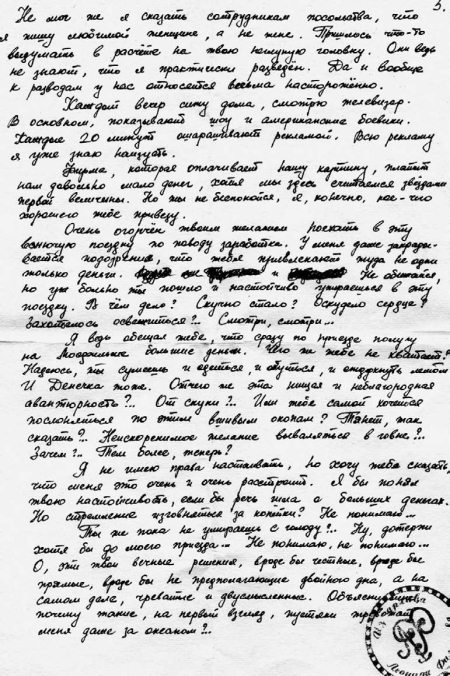 5.
Не мог же я сказать сотрудникам посольства, что
я пишу любимой женщине, а не жене. Пришлось что-то
выдумать в расчёте на твою неглупую головку. Они ведь
не знают, что я практически разведён. Да и вообще
к разводам у нас относятся весьма настороженно.
Каждый вечер сижу дома, смотрю телевизор.
В основном, показывают шоу и американские боевики.
Каждые 20 минут ошарашивают рекламой. Всю рекламу
я уже знаю наизусть.
Фирма, которая оплачивает нашу картину, платит
нам довольно мало денег, хотя мы здесь считаемся звёздами
первой величины. Но ты не беспокойся, я, конечно, кое-что
хорошего тебе привезу.
Очень огорчён твоим желанием поехать в эту
поездку по поводу заработка. У меня даже закрады-
вается подозрение, что тебя привлекают туда не одни
только деньги. и Не обижайся,
но уж больно ты пошло и настойчиво упираешься в эту
поездку. В чём дело? Скучно стало? Оскудело сердце?
Захотелось освежиться?.. Смотри, смотри...
Я ведь обещал тебе, что сразу по приезде получу
на Мосфильме большие деньги. Чего же тебе не хватает?
Надеюсь, ты сумеешь и одеться, и обуться, и отдохнуть летом
И Денечка тоже. Отчего же эта нищая и неблагородная
авантюрность?.. От скуки?.. Или тебе самой хочется
послоняться по этим вшивым окопам? Тянет, так
сказать?.. Неискоренимое желание вываляться в говне?..
Зачем?.. Тем более, теперь?
Я не имею права настаивать, но хочу тебе сказать,
что меня это очень и очень расстроит. Я бы понял
твою настойчивость, если бы речь шла о больших деньгах.
Но стремление изгоняться за копейки? Не понимаю...
Ты же пока не умираешь с голоду?.. Ну, дотерпи
хотя бы до моего приезда... Не понимаю, не понимаю...
О, эти твои вечные решения, вроде бы честные, вроде бы
прямые, вроде бы не предполагающие двойного дна, а на
самом деле, чреватые и двусмысленные.
почему такие, на первый взгляд, пустяки тревожат
меня даже за океаном?..